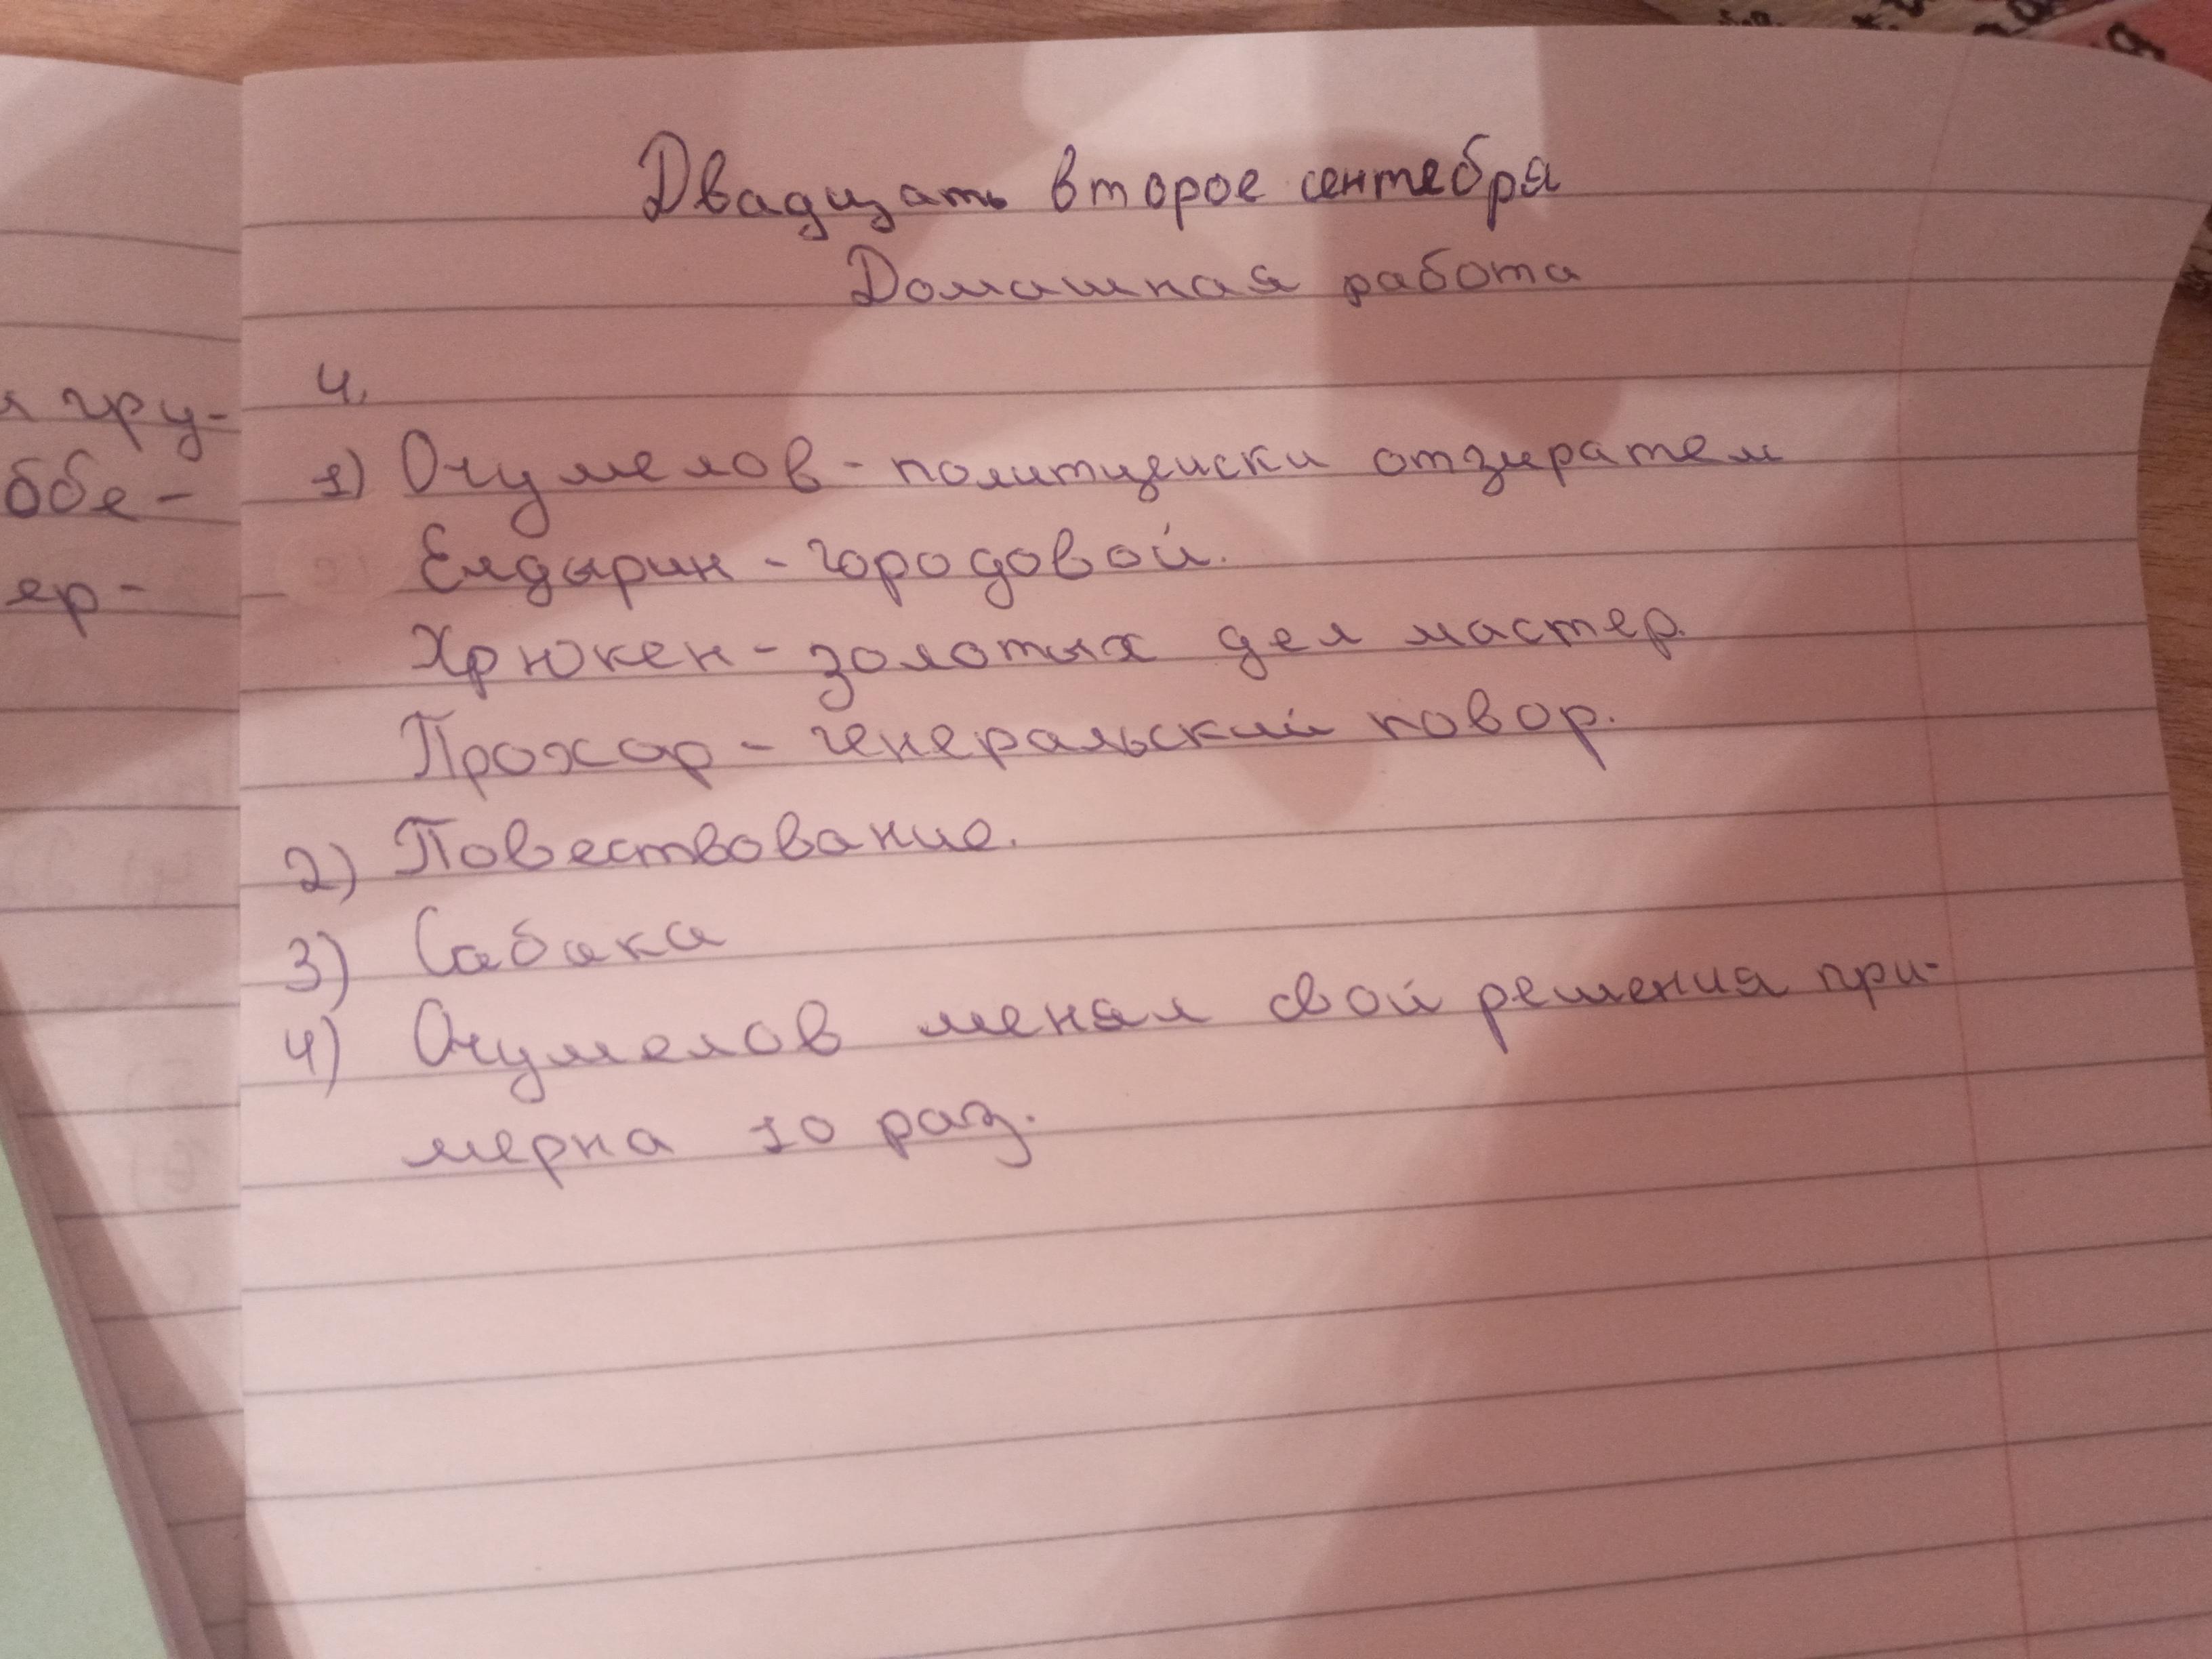 Двадцать второе сентебря
Домашная работа
4.
1) Очумелов - политцейски отзиратем
Елдырин - городовой.
Хрюкен - золотых дел мастер.
Прохор - генеральский повор.
2) Повествование.
3) Сабака
4) Очумелов менял свой решения при-
мерна 10 раз.
гру-
ббе-
ер-